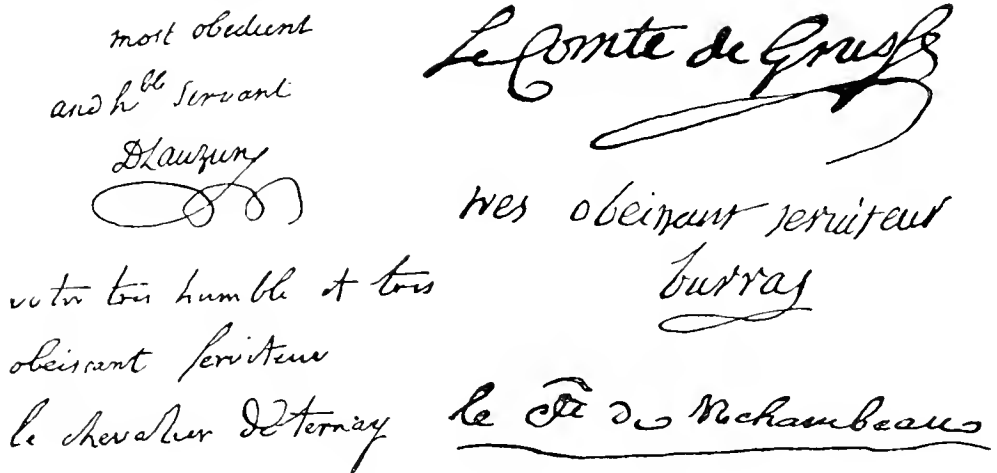 most obedient
and h^ble Servant
DLauzun
votre tres humble et tres
obeissant serviteur
le chevalier de ternay
Le Comte de Grasse
tres obeissant serviteur
barras
le cte de Rochambeau